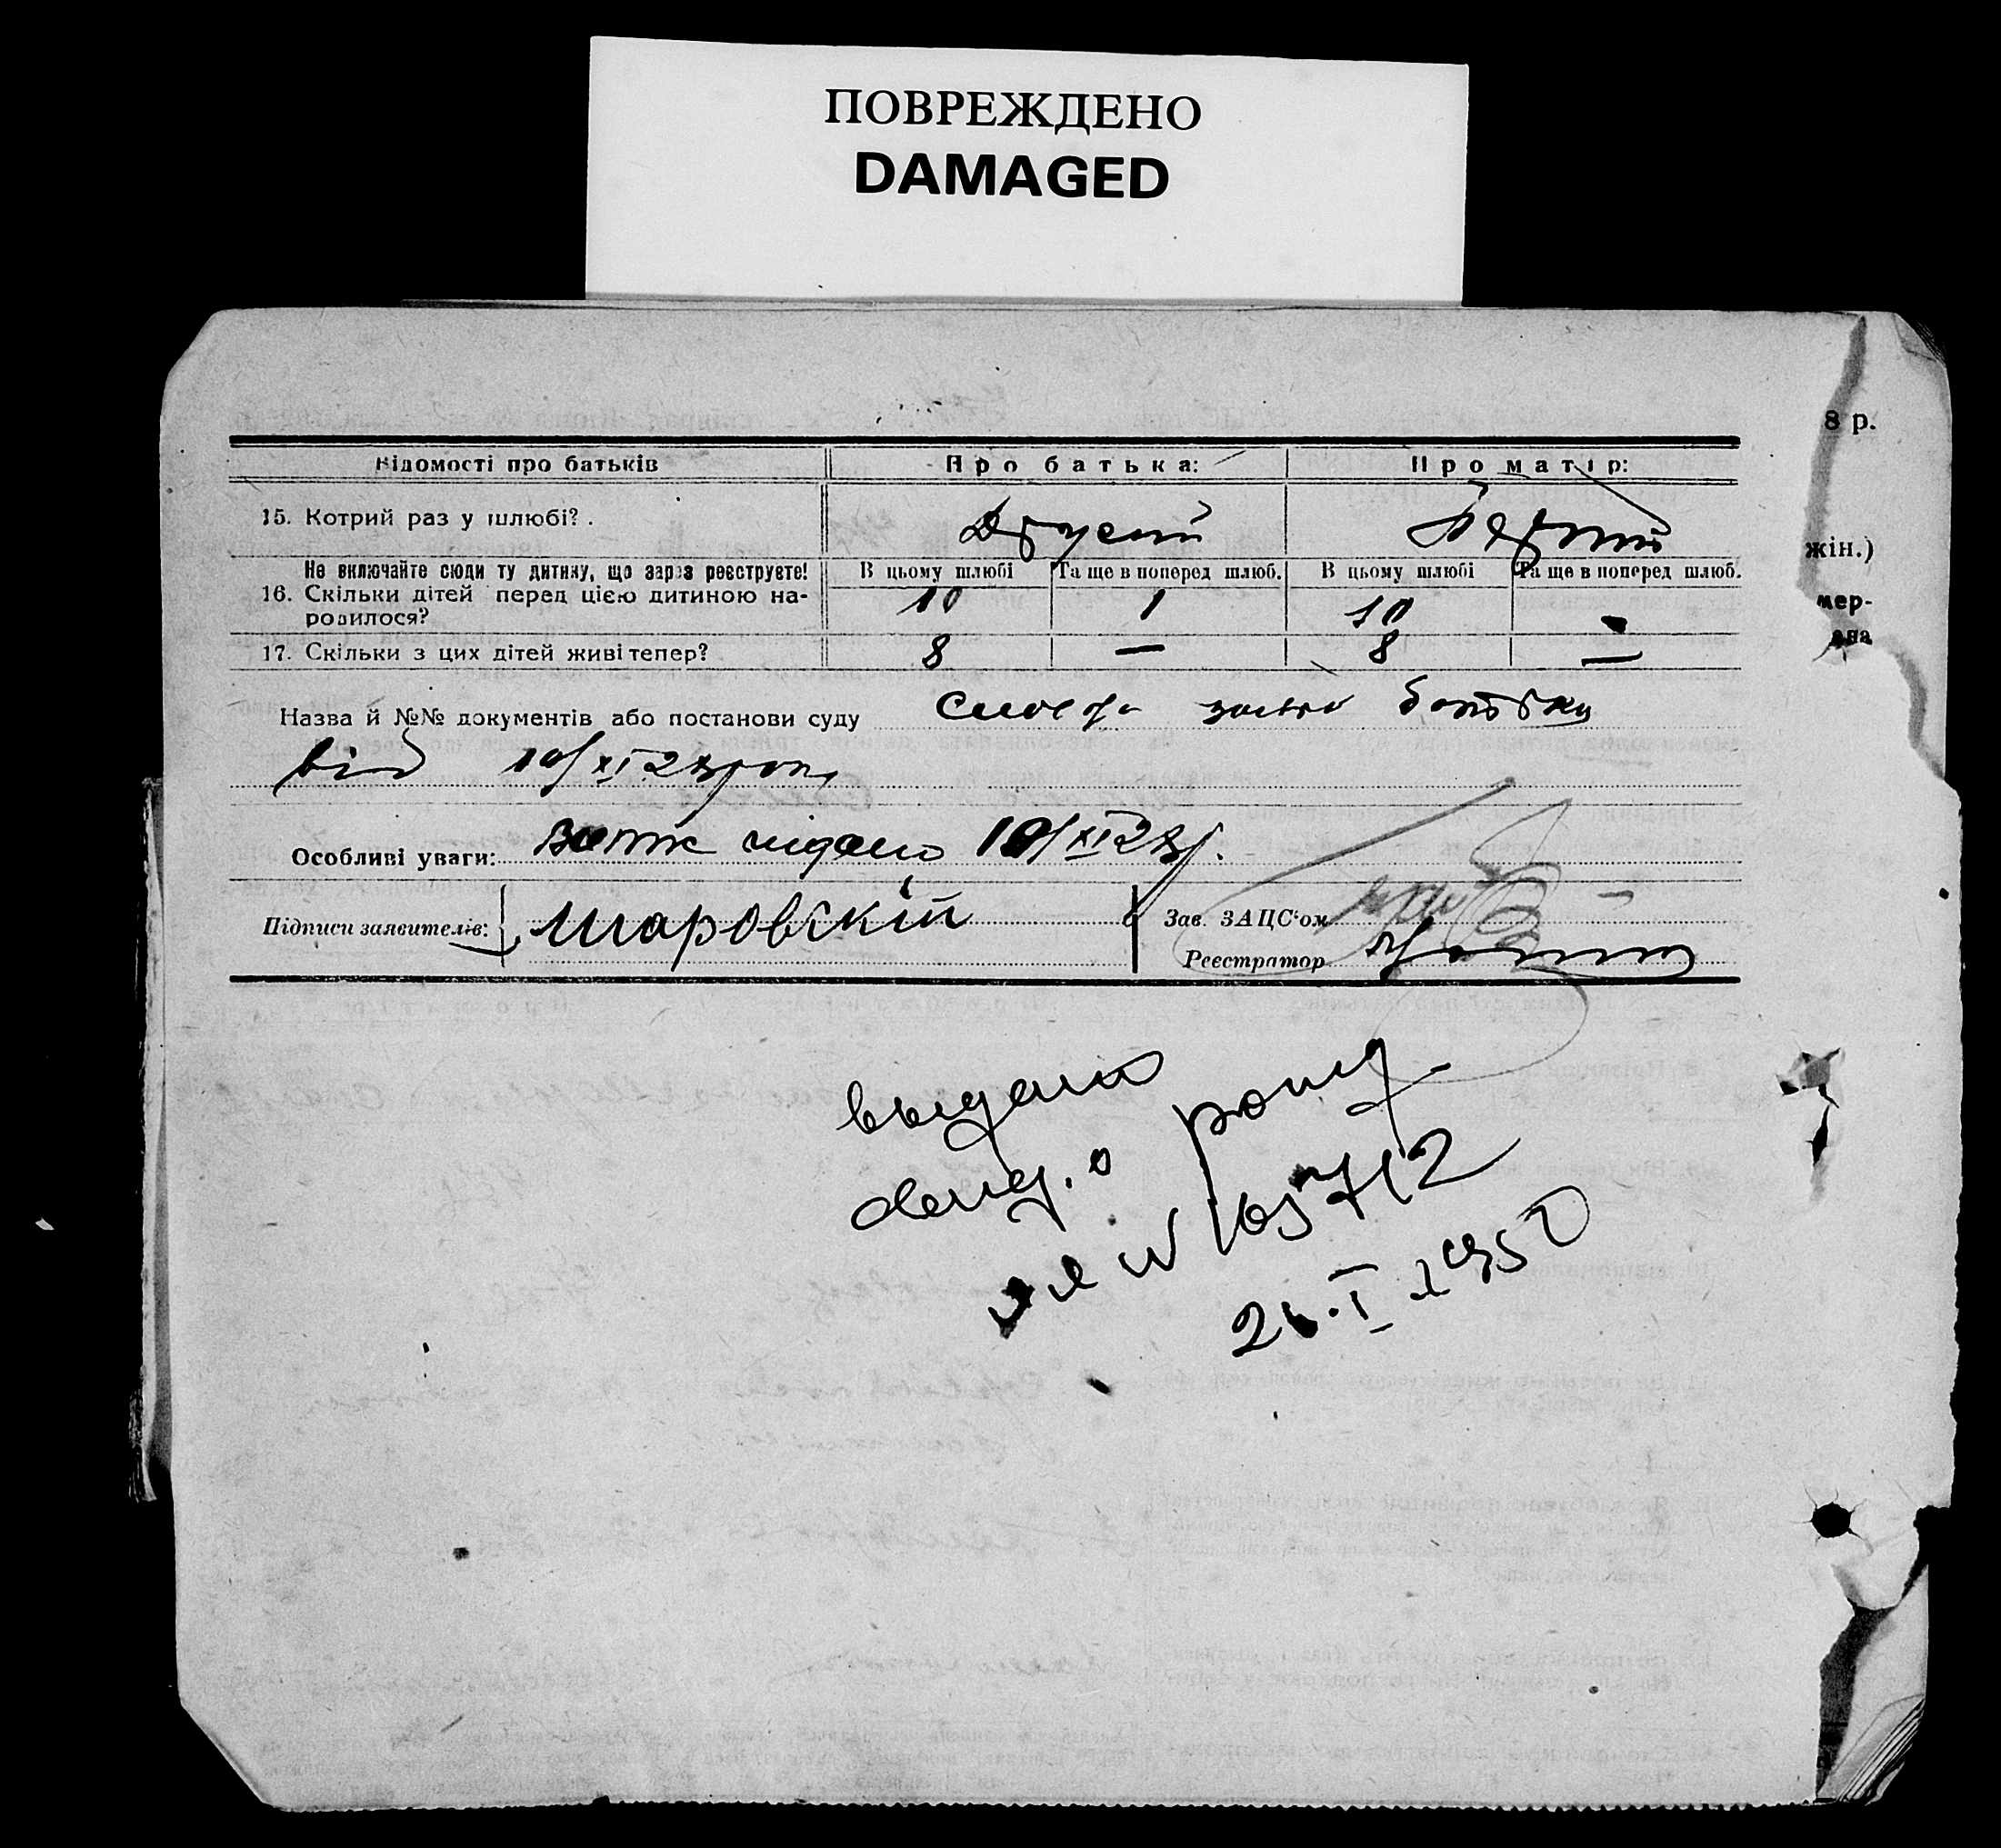 ПОВРЕЖДЕНО
DAMAGED
8 р.
Відомості про батьків Про батька: Про матір:
15. Котрий раз у шлюбі? . Другий Первий
жін.)
Не включайте сюди ту дитину, що зараз реєструєте! В цьому шлюбі Та ще в поперед шлюб. В цьому шлюбі Та ще в поперед шлюб.
16. Скільки дітей перед цією дитиною на-
родилося? 10 1 10 —
мер-
17. Скільки з цих дітей живі тепер? 8 — 8 —
Назва й №№ документів або постанови суду заява батька
від 10/XI 28 року
Особливі уваги: 10/XI 28 р.
Підписи заявителів: Шаровский Зав. ЗАЦС'ом
Реєстратор
выдано
о рожд.
N 105712
1950